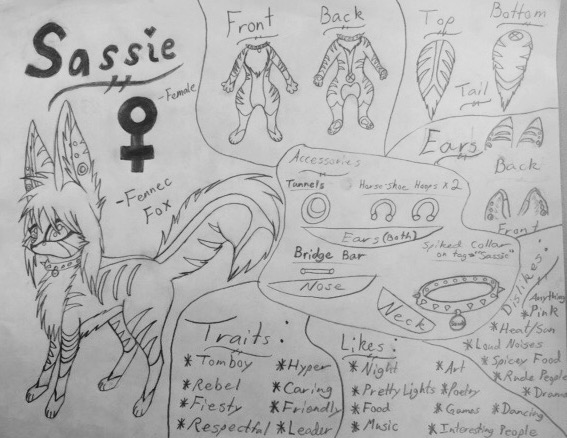 Sassie
-Female
-Fennec
Fox
Front
Back
Top
Bottom
Tail
Ears
Back
Front
Accessories
Tunnels
Horse Shoe Hoops x2
Ears (Both)
Bridge Bar
Nose
Spiked Collar
on tag→"Sassie"
Neck
Traits:
*Tomboy
*Rebel
*Fiesty
*Respectful
*Hyper
*Caring
*Friendly
*Leader
Likes:
*Night
*Pretty Lights
*Food
*Music
*Art
*Poetry
*Games
*Dancing
*Interesting People
Dislikes:
*Anything
Pink
*Heat/Sun
*Loud Noises
*Spicey Food
*Rude People
*Drama